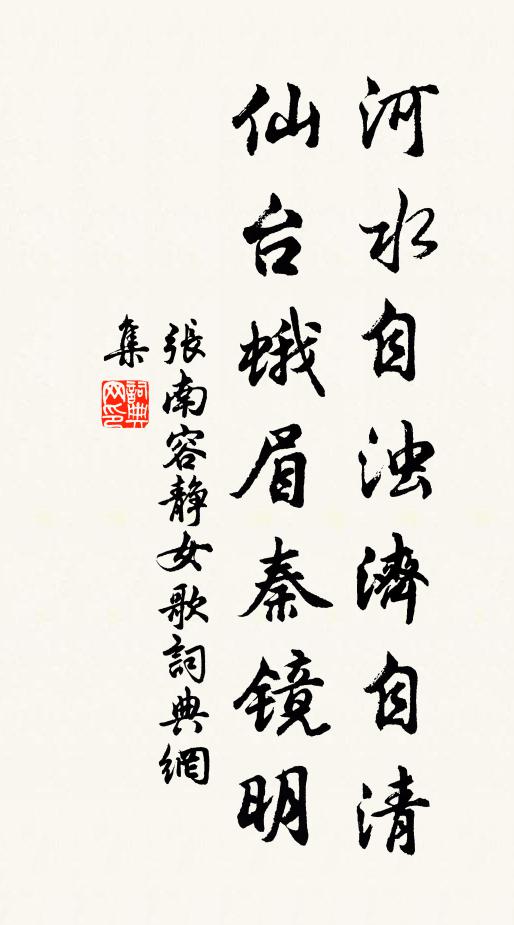 河水自浊濟自清
仙台蛾眉秦镜明
張南容静女歌詞典網
集
詞典网印